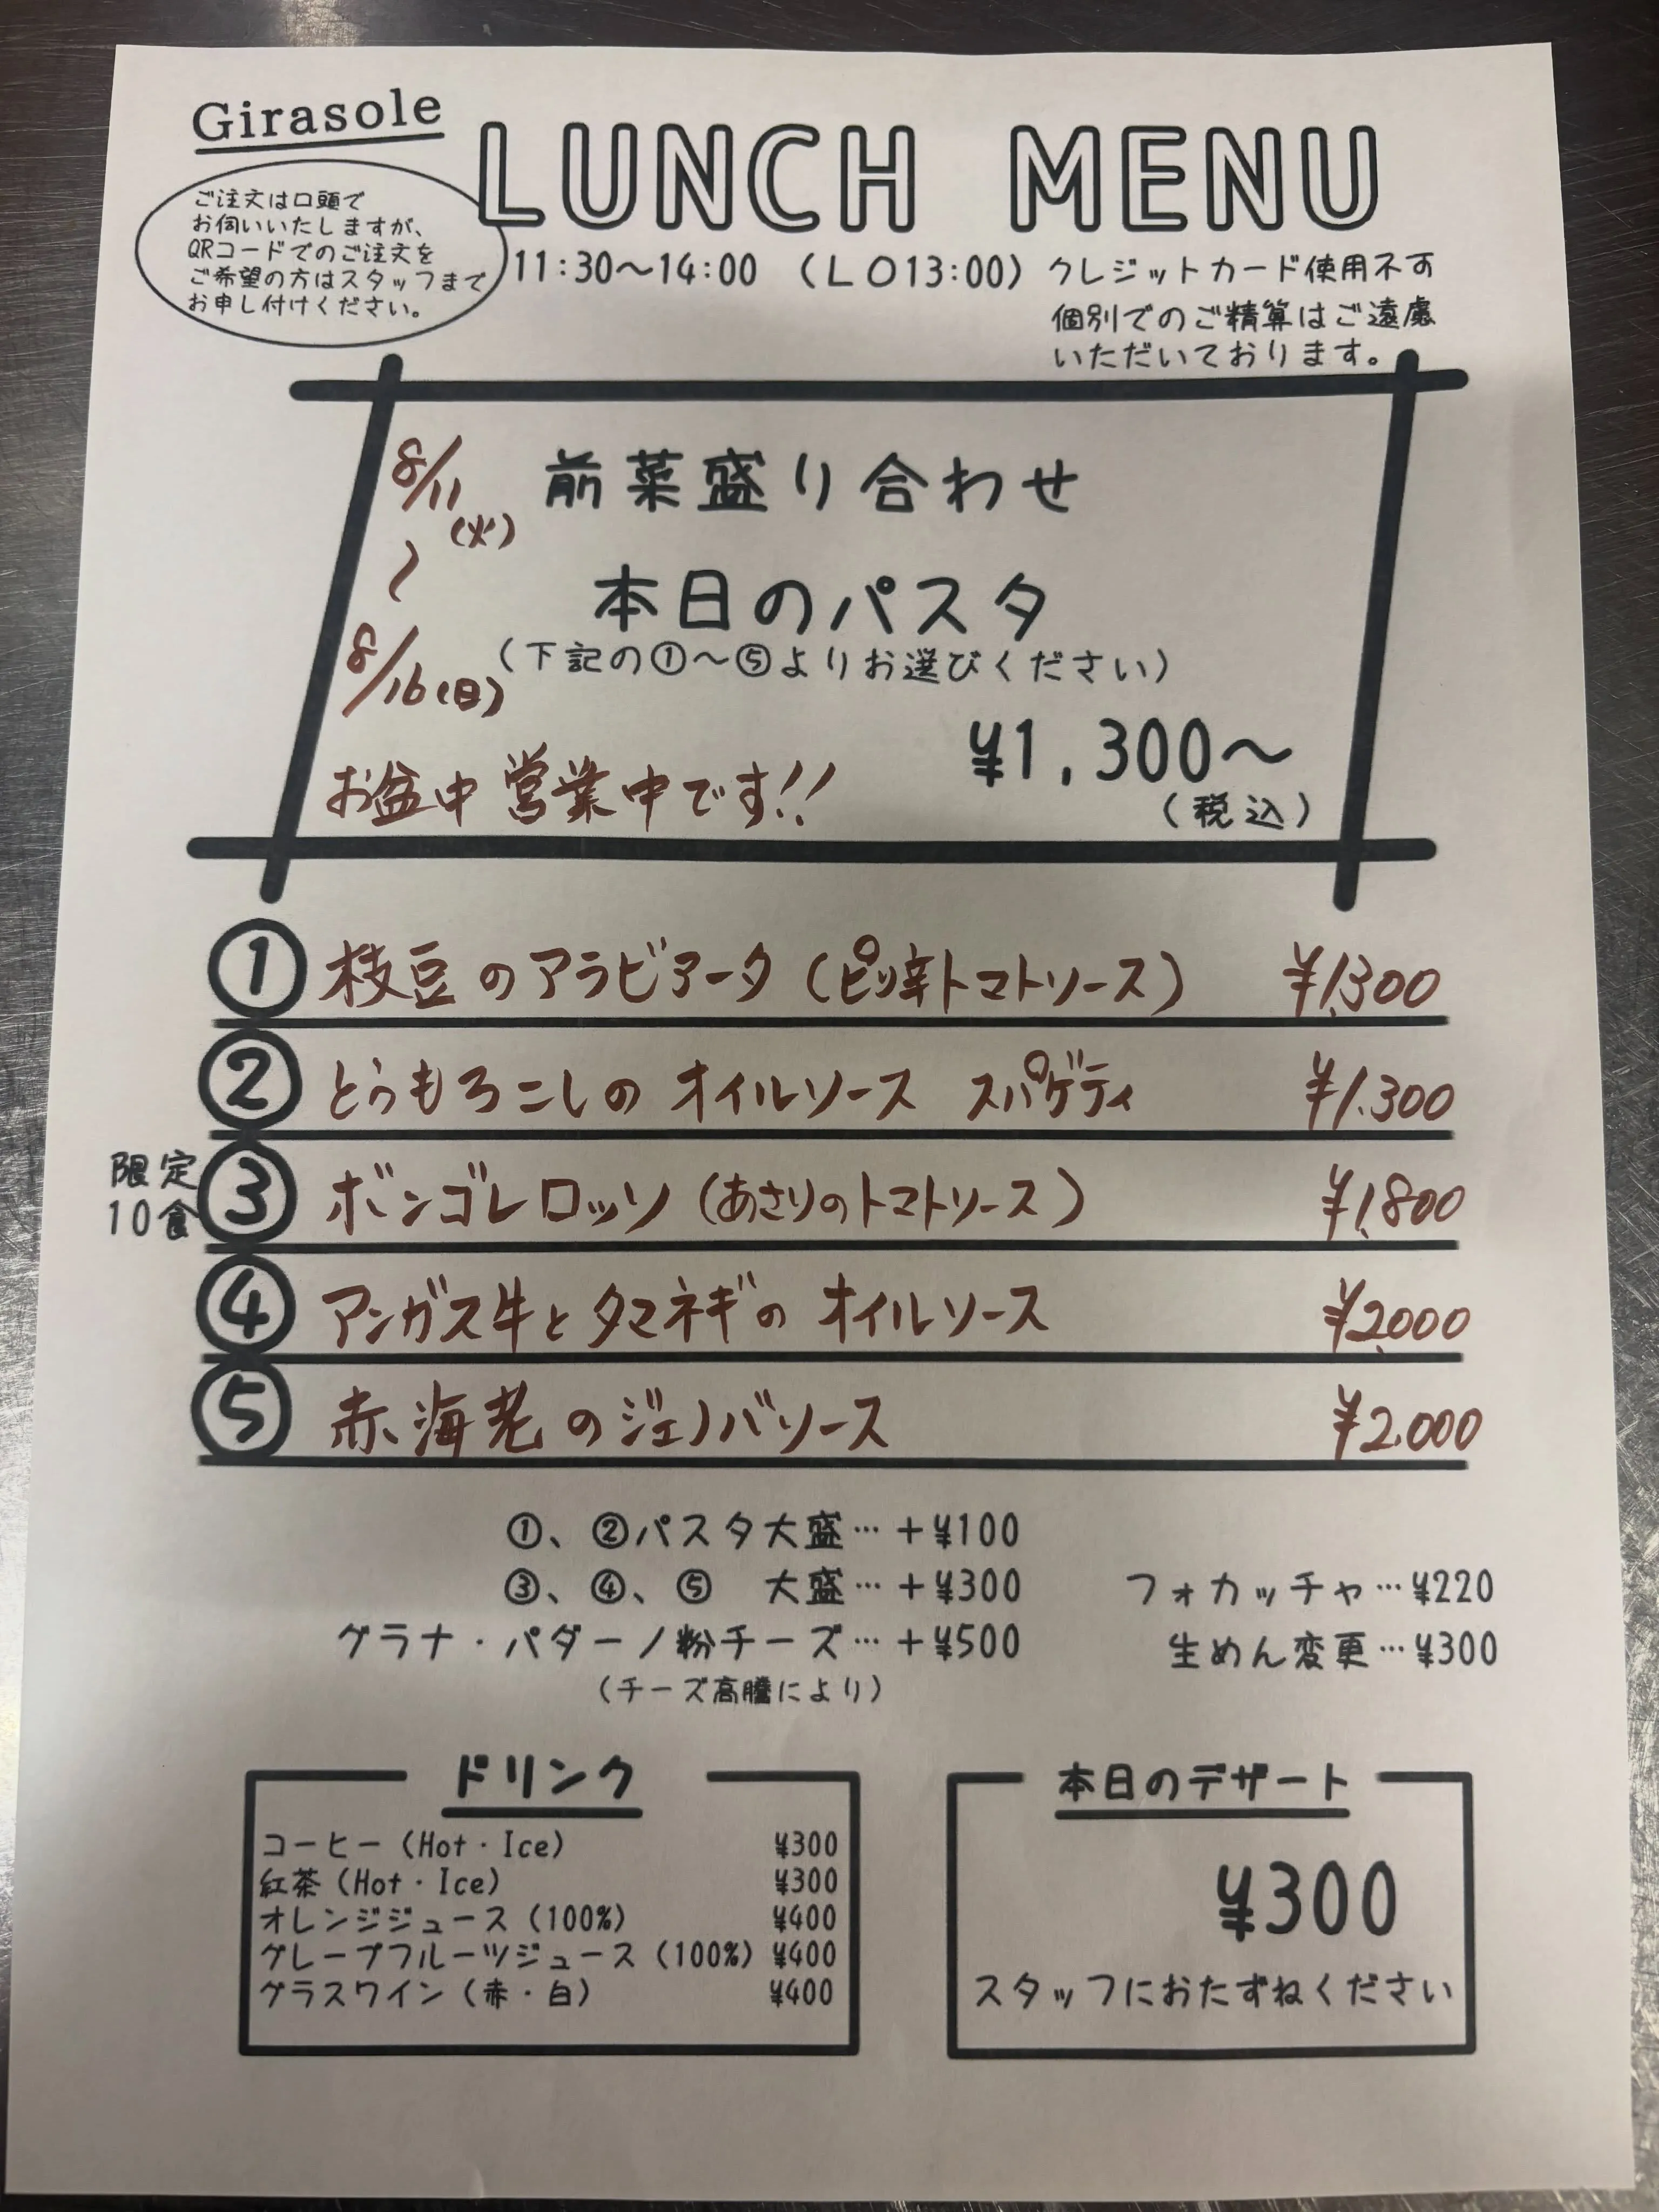 Girasole
LUNCH MENU
ご注文は口頭で
お伺いいたしますが、
QRコードでのご注文を
ご希望の方はスタッフまで
お申し付けください。
11:30～14:00 （LO13:00）クレジットカード使用不可
個別でのご精算はご遠慮
いただいております。
8/11(火)
～
8/16(日)
前菜盛り合わせ
本日のパスタ
（下記の①～⑤よりお選びください）
¥1,300～
（税込）
お盆中営業中です!!
① 枝豆のアラビアータ（ピリ辛トマトソース） ¥1,300
② とうもろこしの オイルソース スパゲティ ¥1,300
限定
10食
③ ボンゴレロッソ（あさりのトマトソース） ¥1,800
④ アンガス牛とタマネギの オイルソース ¥2,000
⑤ 赤海老のジェノバソース ¥2,000
①、②パスタ大盛…＋¥100
③、④、⑤ 大盛…＋¥300
グラナ・パダーノ粉チーズ…＋¥500
（チーズ高騰により）
フォカッチャ…¥220
生めん変更…¥300
ドリンク
コーヒー（Hot・Ice） ¥300
紅茶（Hot・Ice） ¥300
オレンジジュース（100%） ¥400
グレープフルーツジュース（100%） ¥400
グラスワイン（赤・白） ¥400
本日のデザート
¥300
スタッフにおたずねください